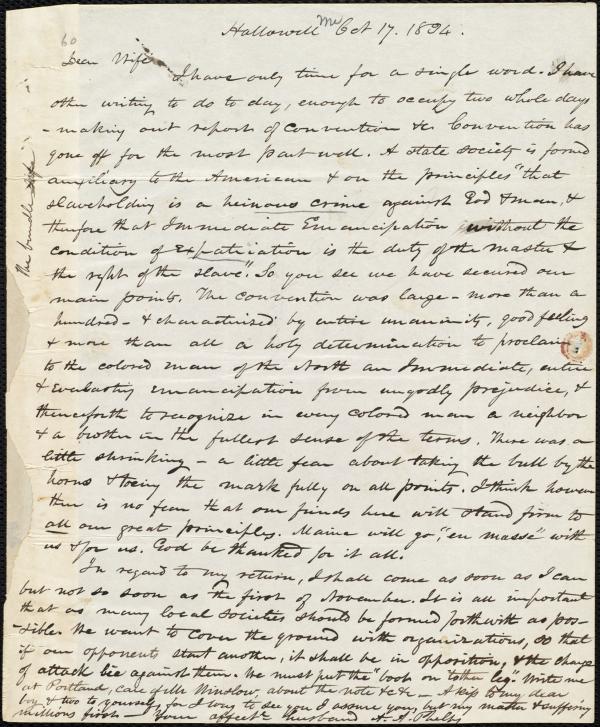 60
Hallowell Me Oct 17. 1834.
Dear Wife
I have only time for a single word. I have
other writing to do to day, enough to occupy two whole days
- making out report of Convention &c. Convention has
gone off for the most part well. A state society is formed
auxiliary to the American & on the principles "that
slaveholding is a heinous crime against God & man, &
therefore that Immediate Emancipation without the
condition of Expatriation is the duty of the master &
the right of the slave". So you see we have secured our
main points. The convention was large - more than a
hundred - & characterised by entire unanimity, good feeling
& more than all a holy determination to proclaim
to the colored man of the North an Immediate, entire
& Everlasting emancipation from ungodly prejudice, &
thenceforth to recognize in every colored man a neighbor
& a brother in the fullest sense of the terms. There was a
little shrinking - a little fear about taking the bull by the
horns & toeing the mark fully on all points. I think however
there is no fear that our friends here will stand firm to
all our great principles. Maine will go, "en masse" with
us & for us. God be thanked for it all.
In regard to my return, I shall come as soon as I can
but not so soon as the first of November. It is all important
that as many local societies should be formed forthwith as pos-
sible. We want to cover the ground with organizations, so that
if our opponents start another, it shall be in opposition, & the charge
of attack lie against them. We must put the "boot on tother leg". Write me
at Portland, care of Mr Winslow, about the note &c &c - A kiss to my dear
boy & two to yourself, for I long to see you I assure you, but my master & suffering
millions first - Your affect. husband A. A. Phelps
The bundle safe